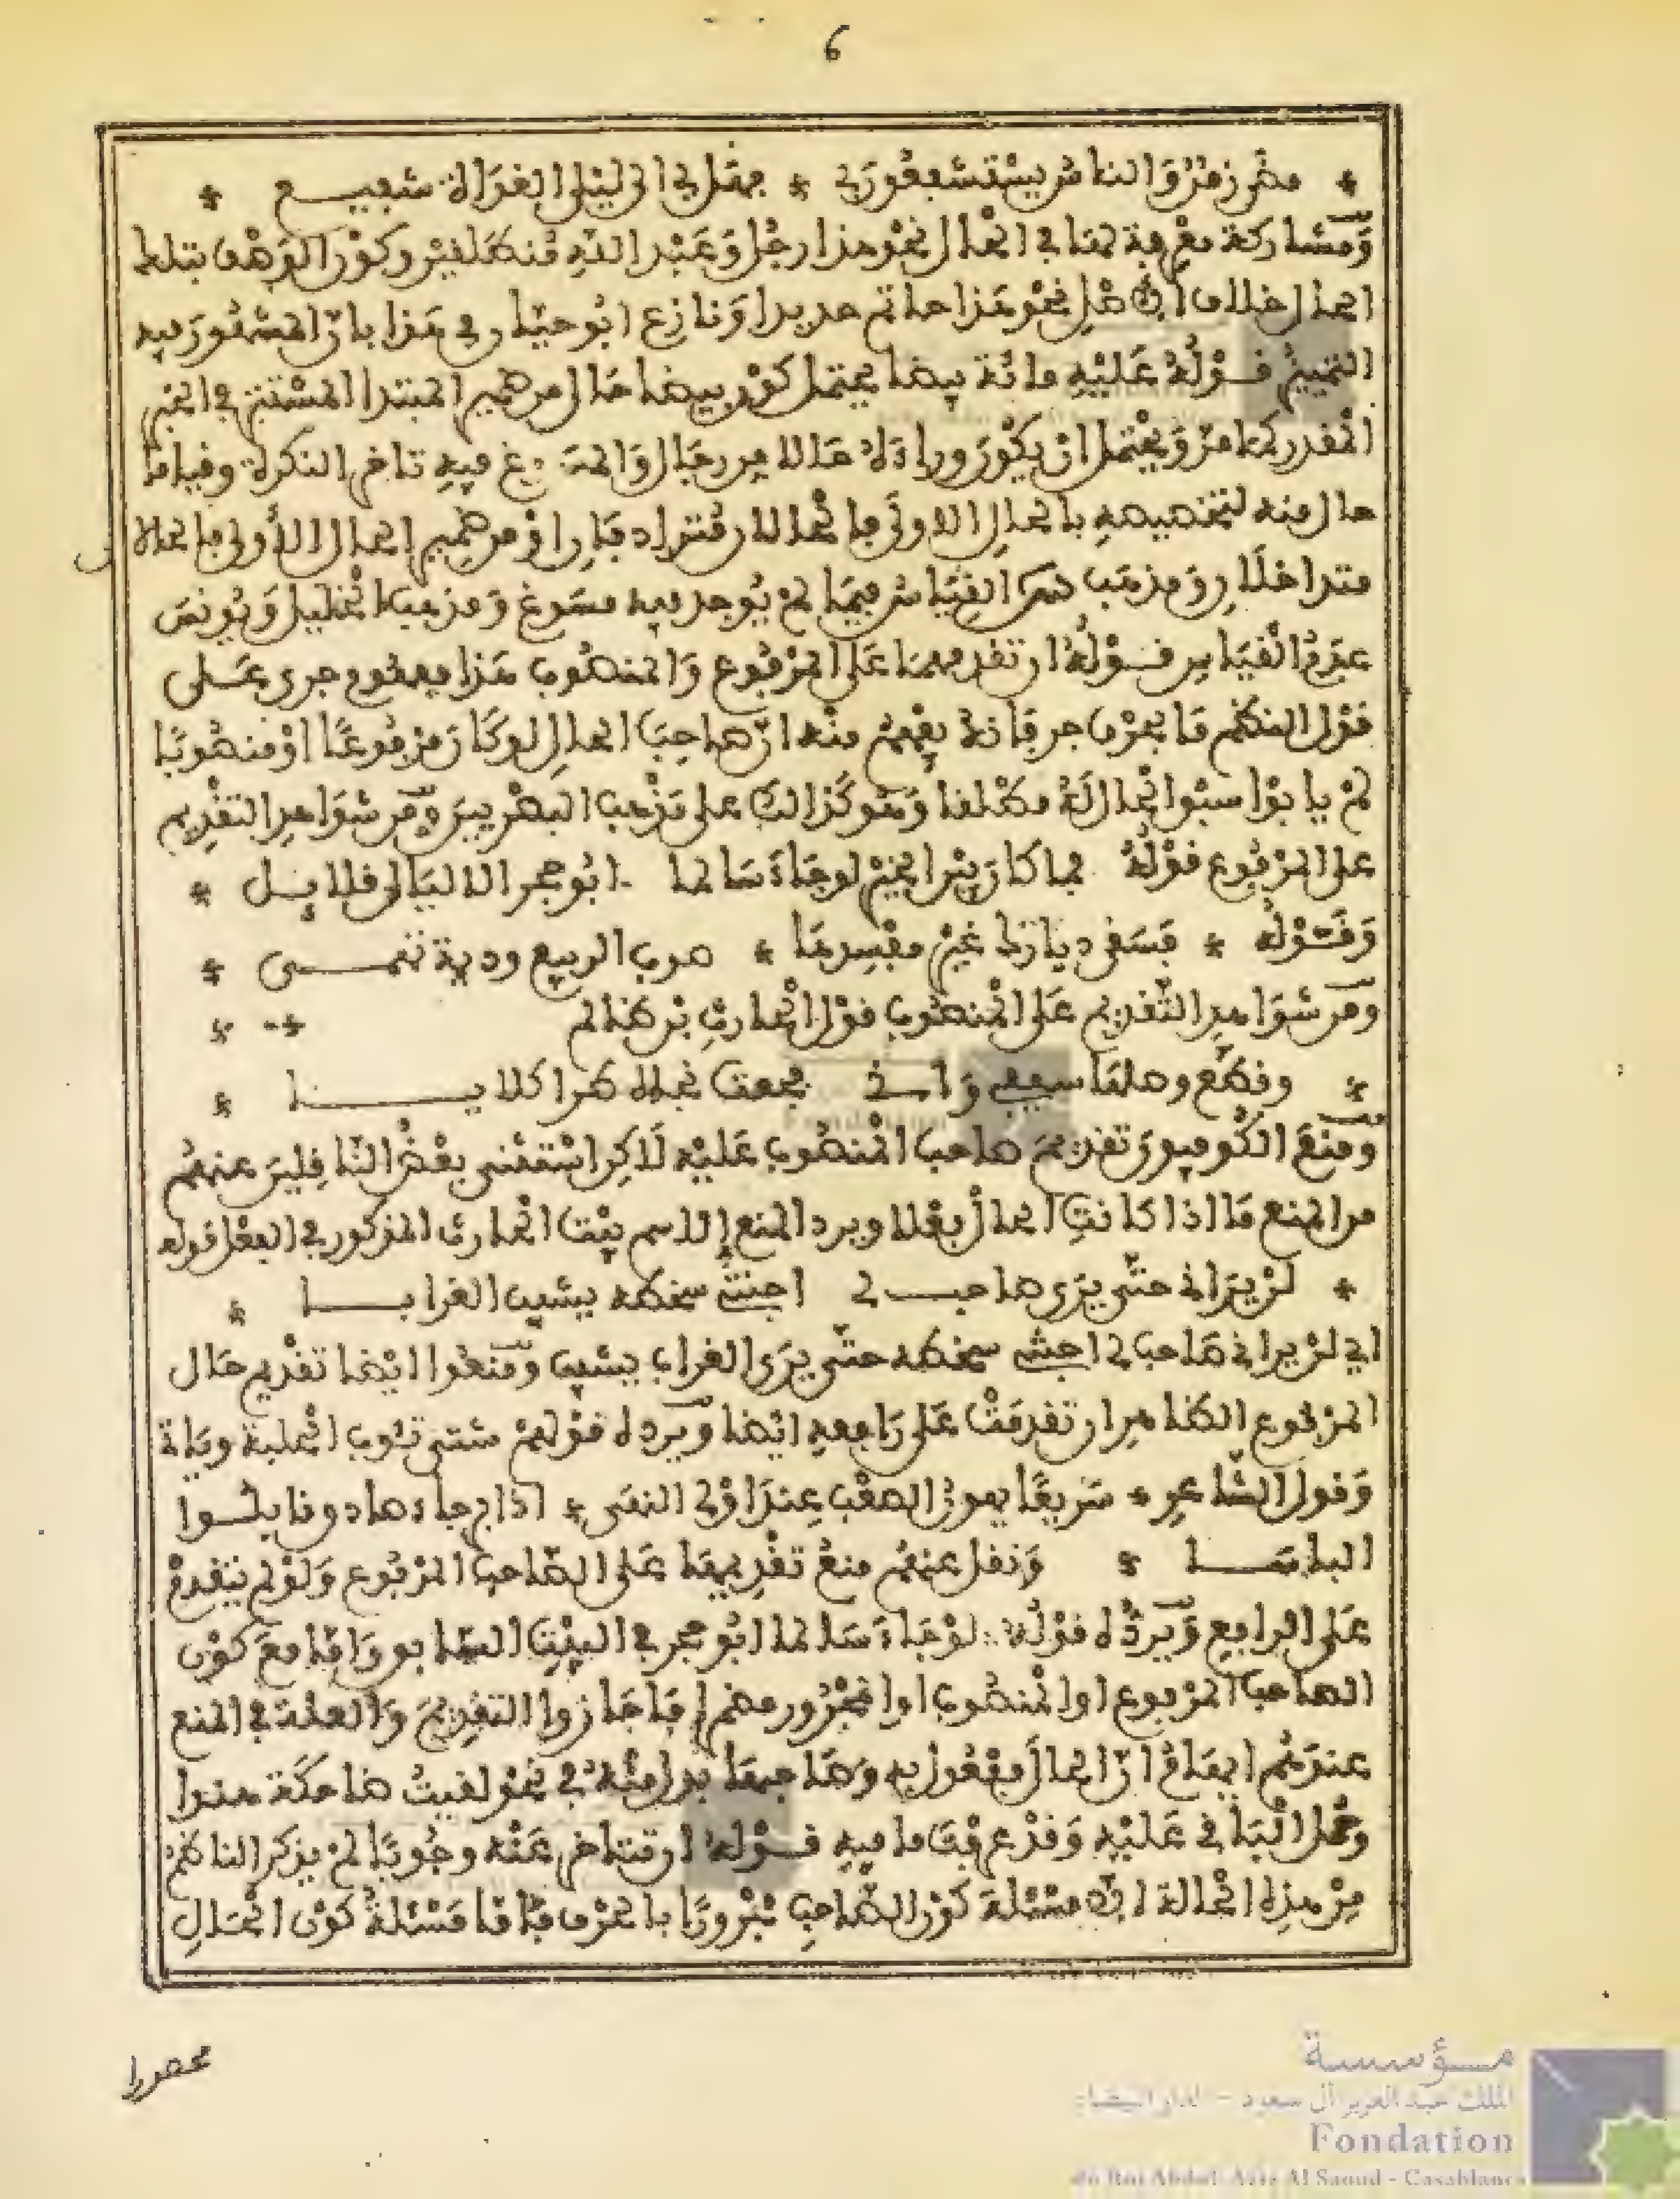 6
* مضى زمن والناس يستشفعون بي * فهل لي الى ليلى الغداة شفيـــع *
ومشاركة معرفة لها في الحال نحو هذا رجل وعبد الله منطلقين وكون الوصف بتلك
الحال خلاف الاصل نحو هذا خاتم حديدا ونازع ابو حيان في هذا بان المشهور فيه
التمييز قـوله عليه مائة بيضا يحتمل كون بيضا حال من ضمير المبتدا المستتر في الخبر
المقدر كما مر ويحتمل ان يكون وراءه حالا من رجال والمسوغ فيه تاخر النكرة وقياما
حال منه لتخصيصه بالحال الاولى فالحالان مترادفان او من ضمير الحال الأولى فالحالان
متداخلان ومذهب القياس فيما لم يوجد فيه مسوغ ومذهب الخليل ويونس
عدم القياس قـوله ان تقدمها على المرفوع والمنصوب هذا مفهوم جرى على
قول الناظم ما بحرف جر فانه يفهم منه ان صاحب الحال لو كان مرفوعا او منصوبا
لم يابوا سبق الحال له مطلقا وهو كذالك على مذهب البصريين ومن شواهد التقديم
على المرفوع قوله فما كان بين الخير لو جاء سالما ابو حجر الا ليال قلايـل *
وقـوله * فسقى ديارك غير مفسدها * صوب الربيع وديمة تهمـــى *
ومن شواهد التقديم على المنصوب قول الحارث بن ظالم *
* وقطع وصلها سيفي وانـي فجعت بخالد طرا كلابـــا *
ومنع الكوفيون تقديم صاحب المنصوب عليه لاكن استثنى بعض الناقلين عنهم
من المنع ما اذا كانت الحال فعلا ويرد المنع في الاسم بيت الحارث المذكور وفي الفعل قوله
* لن يراني حتى يرى صاحبـــي اجتني سخطه يشيب الغرابـــا *
اي لن يراني صاحبي اجتني سخطه حتى يرى الغراب يشيب ومنعوا ايضا تقديم حال
المرفوع الظاهر ان تقدمت على رافعه ايضا ويرده قولهم شتى تئوب الحلبة
وقول الشاعر * سريعا يهون الصعب عند اولي النهى * اذا برجاء صادق قابلـوا
الباسـا * ونقل عنهم منع تقديمها على الصاحب المرفوع ولو لم يتقدم
على الرافع ويرده قوله لو جاء سالما ابو حجر في البيت السابق واما مع كون
الصاحب المرفوع او المنصوب او المجرور مضمرا فاجازوا التقديم والعلة في المنع
عندهم ايهام ان الحال مفعول به وصاحبها بدل منه في نحو لقيت ضاحكة هندا
وحمل الباقي عليه وقد عرفت ما فيه قـوله ان تتاخر عنه وجوبا لم يذكر الناظم
من هذه الحالة الا مسئلة كون الصاحب مجرورا بالحرف فاما مسئلة كون الحال
محصورا
مؤسسة
الملك عبد العزيز آل سعود - الدار البيضاء
Fondation
du Roi Abdul-Aziz Al Saoud - Casablanca